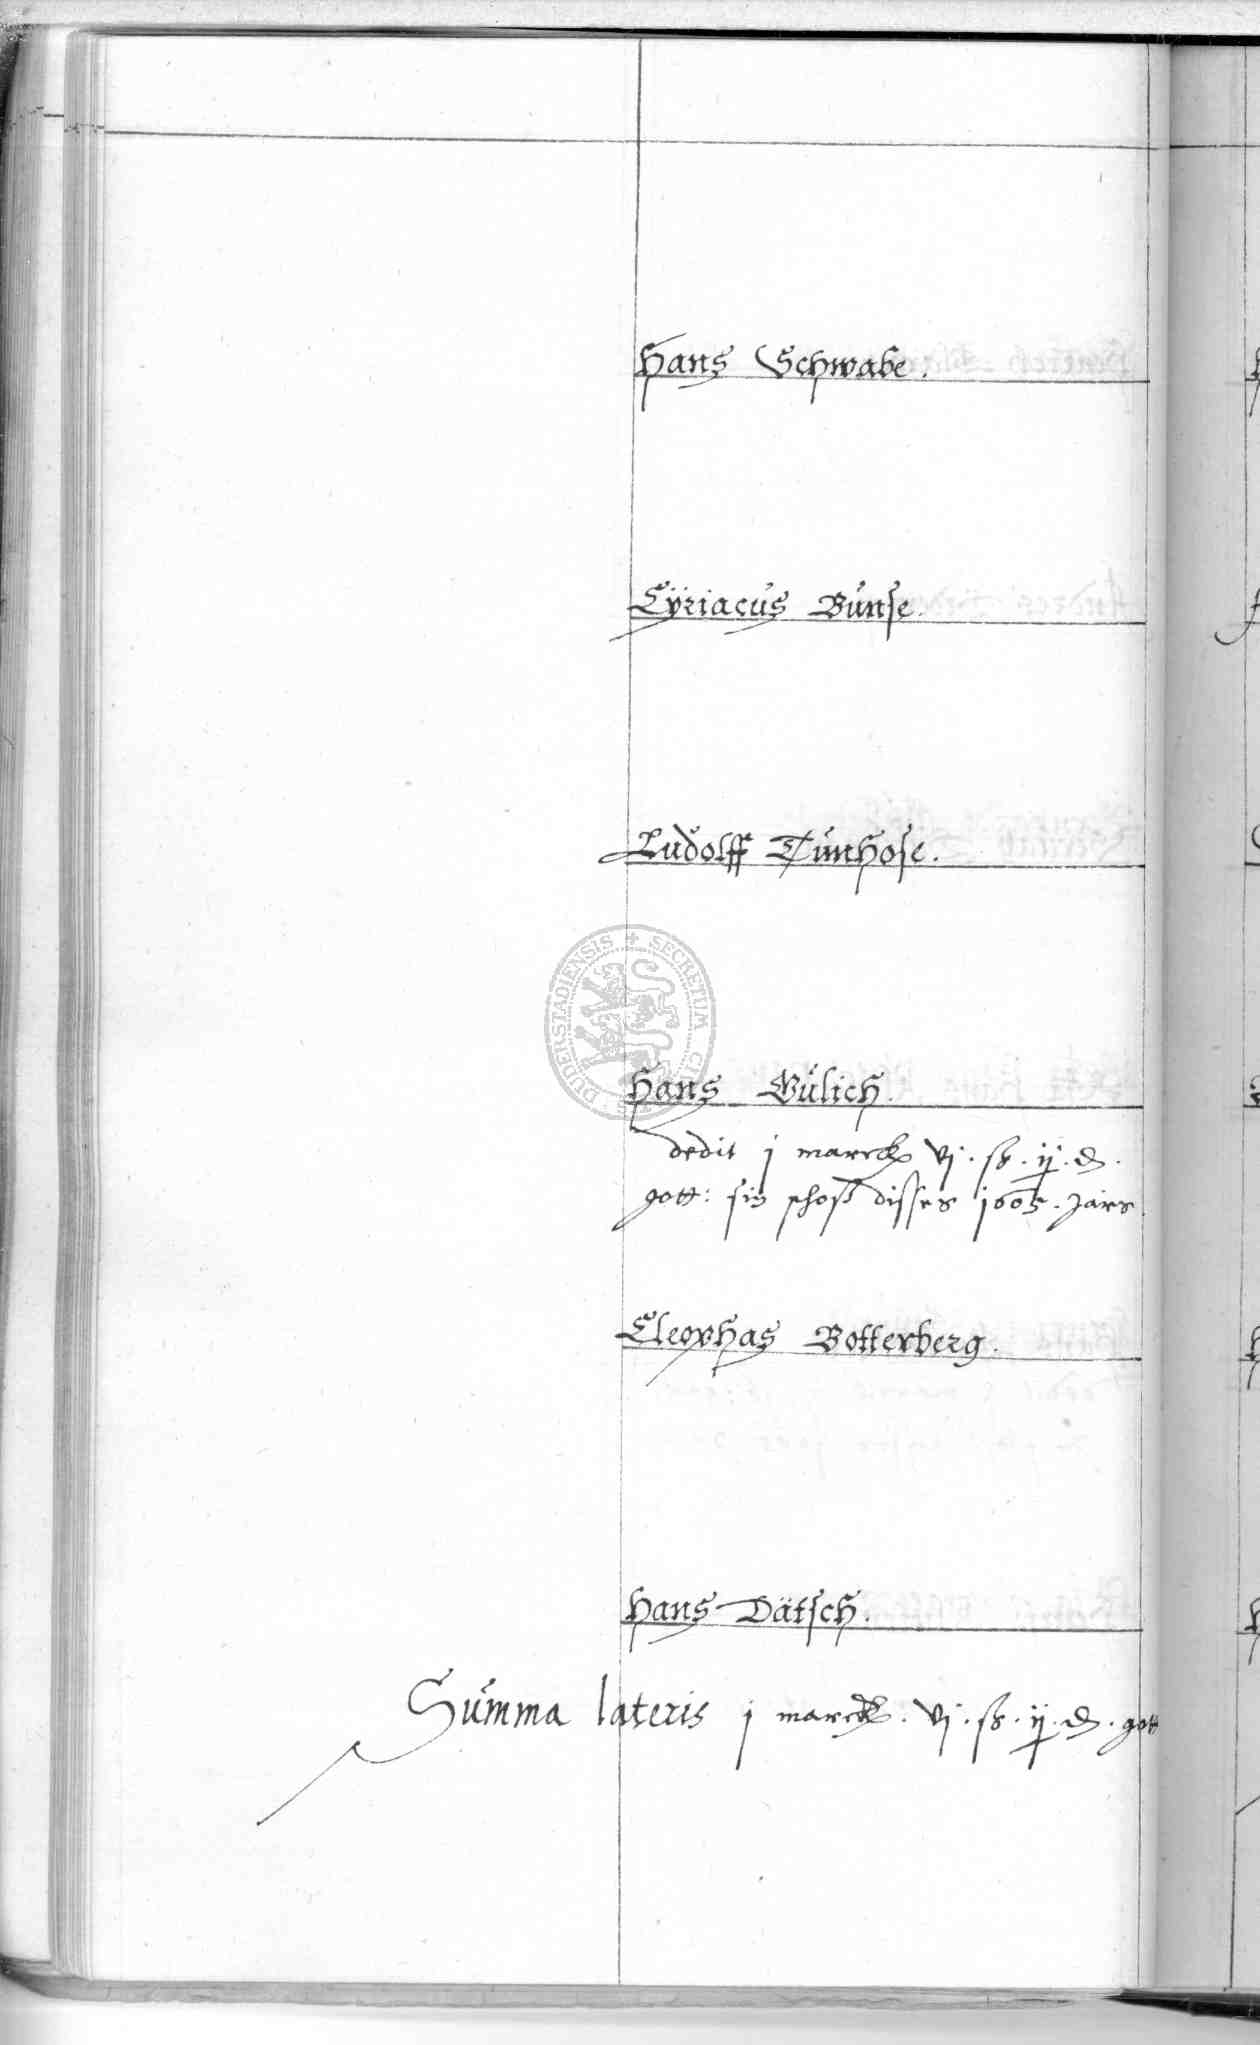 Hans Schwabe.
Cÿriacus Bunse.
Ludolff Tunhose.
DUDERSTADIENSIS + SECRETUM
Hans Gülich.
dedit j marck vj. ß. ij. d.
gott: sin schoß disses 1605. Jars
Cleophas Botterberg.
Hans Dätsch.
Summa lateris j marck. vj. ß. ij. d. gott